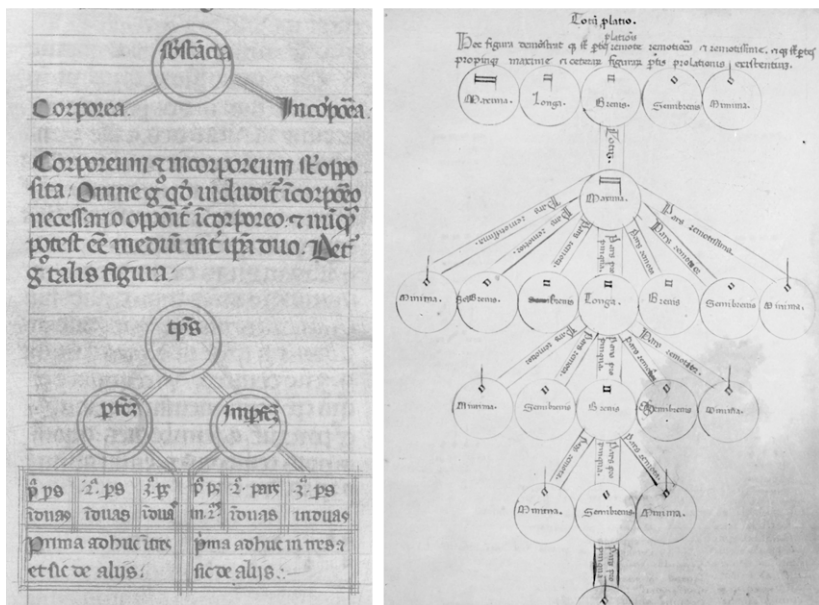 sb̄stācia
Corporea. Incorp̄oea.
Corporeum ⁊ incorporeum sūt oppo
sita. Omne g̊ qd̄ includit̄ īcorpoeo
necessario opponit̄ īcorporeo. ⁊
potest cē mediū int̄ ip̄a duo. Det̄
g̊ talis figura.
tp̄s
pfc̄ȝ impfc̄ȝ
p̄a ps 2a. ps 3a. ps p̄a ps 2a. pars 3a. ps
īduas īduas īduas in 2as īduas induas
Prima adhuc īties pīma adhuc in tres ⁊
et sic de alijs. sic de alijs.
Totū platio.
plationis
Hec figura demōstrat q̄ sūt ptes remote remotiores ⁊ remotissime. ⁊ q̄ sūt ptes
propinque maxime ⁊ ceterarum figurarum ptis prolationis existentium.
Maxima. Longa. Brevis Semibrevis Minima.
Totū.
Maxima.
Pars remotissima. Pars remotior. Pars remota Pars pro pinqua. Pars remota Pars remotior. Pars remotissima.
Minima. Brevis. Longa. Brevis Semibrevis Minima.
Pars remotior Pars remota. Pars pro pinqua. Pars remota Pars remotior.
Minima. Semibrevis Brevis Semibrevis Minima.
Pars remota. Pars pro pinqua. Pars remota
Minima. Semibrevis Minima.
Pars pro pinqua.